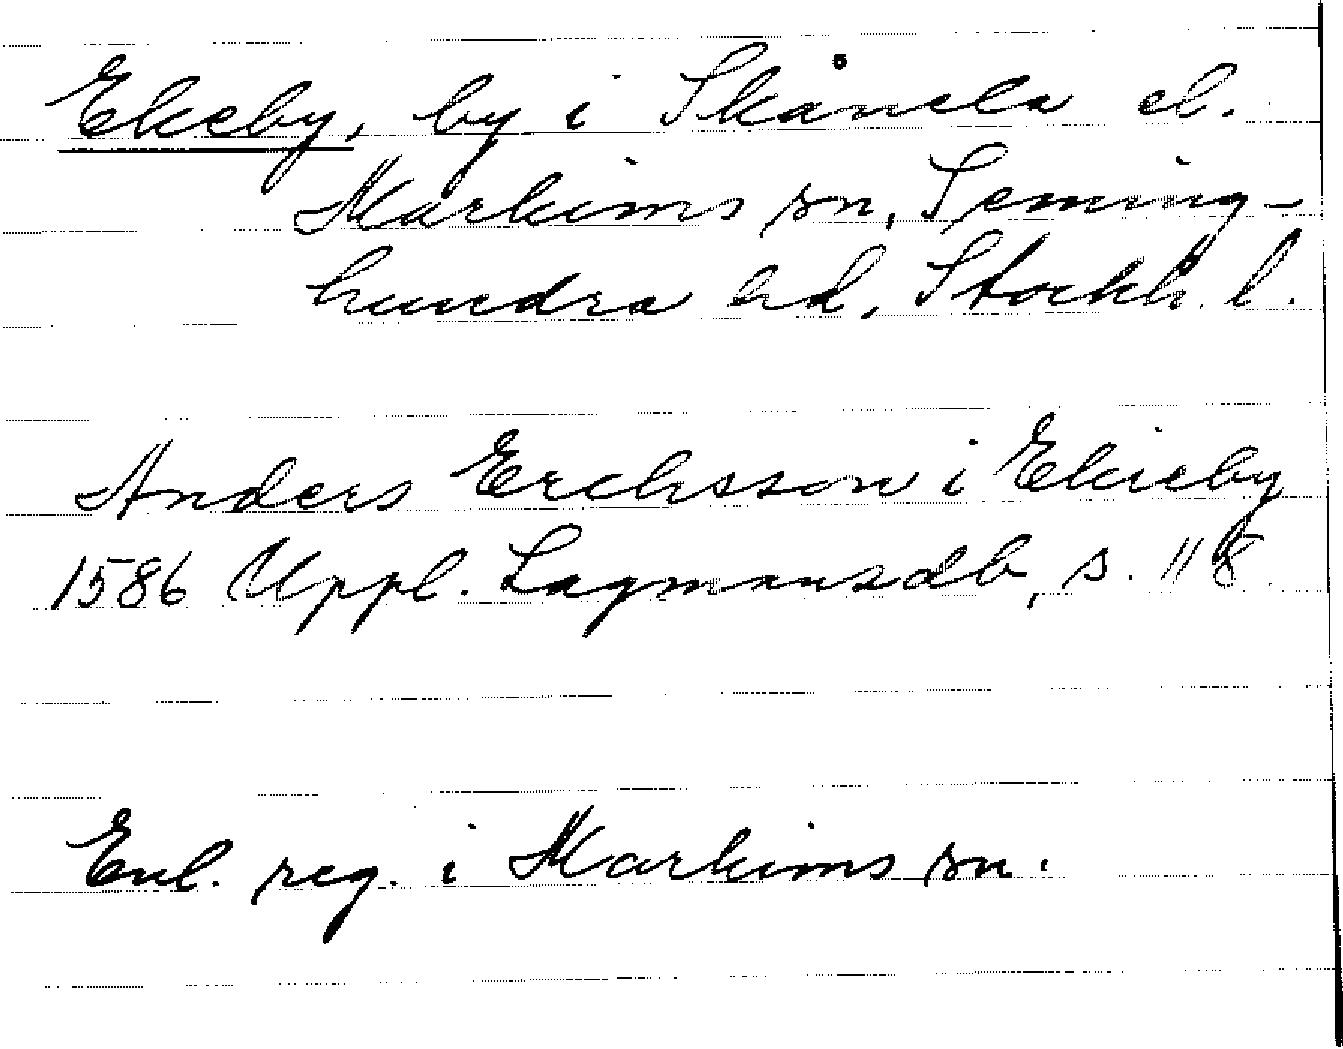 Ekeby, by i Skånela el.
Markims sn, Seming-
hundra hd, Stockh. l.
Anders Erchsson i Ekieby
1586 Uppl. Lagmansdb, s. 118
Enl. reg. i Markims sn.